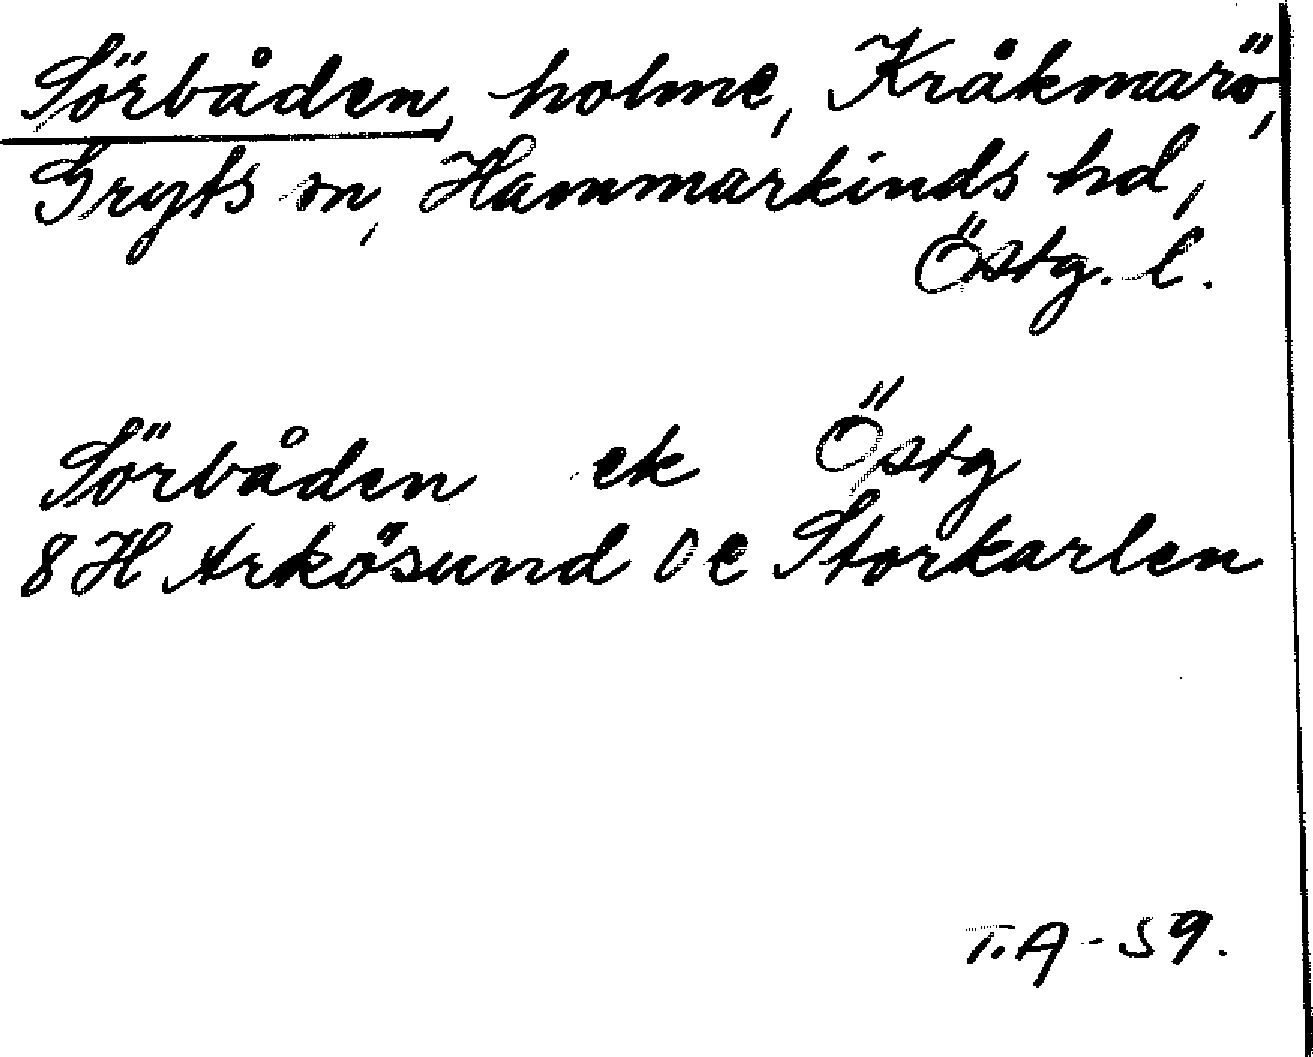 Sörbåden, holme, Kråkmarö,
Gryts sn, Hammarkinds hd,
Östg. l.
Sörbåden ek Östg
8H Arkösund 0e Storkarlen
T.A-59.